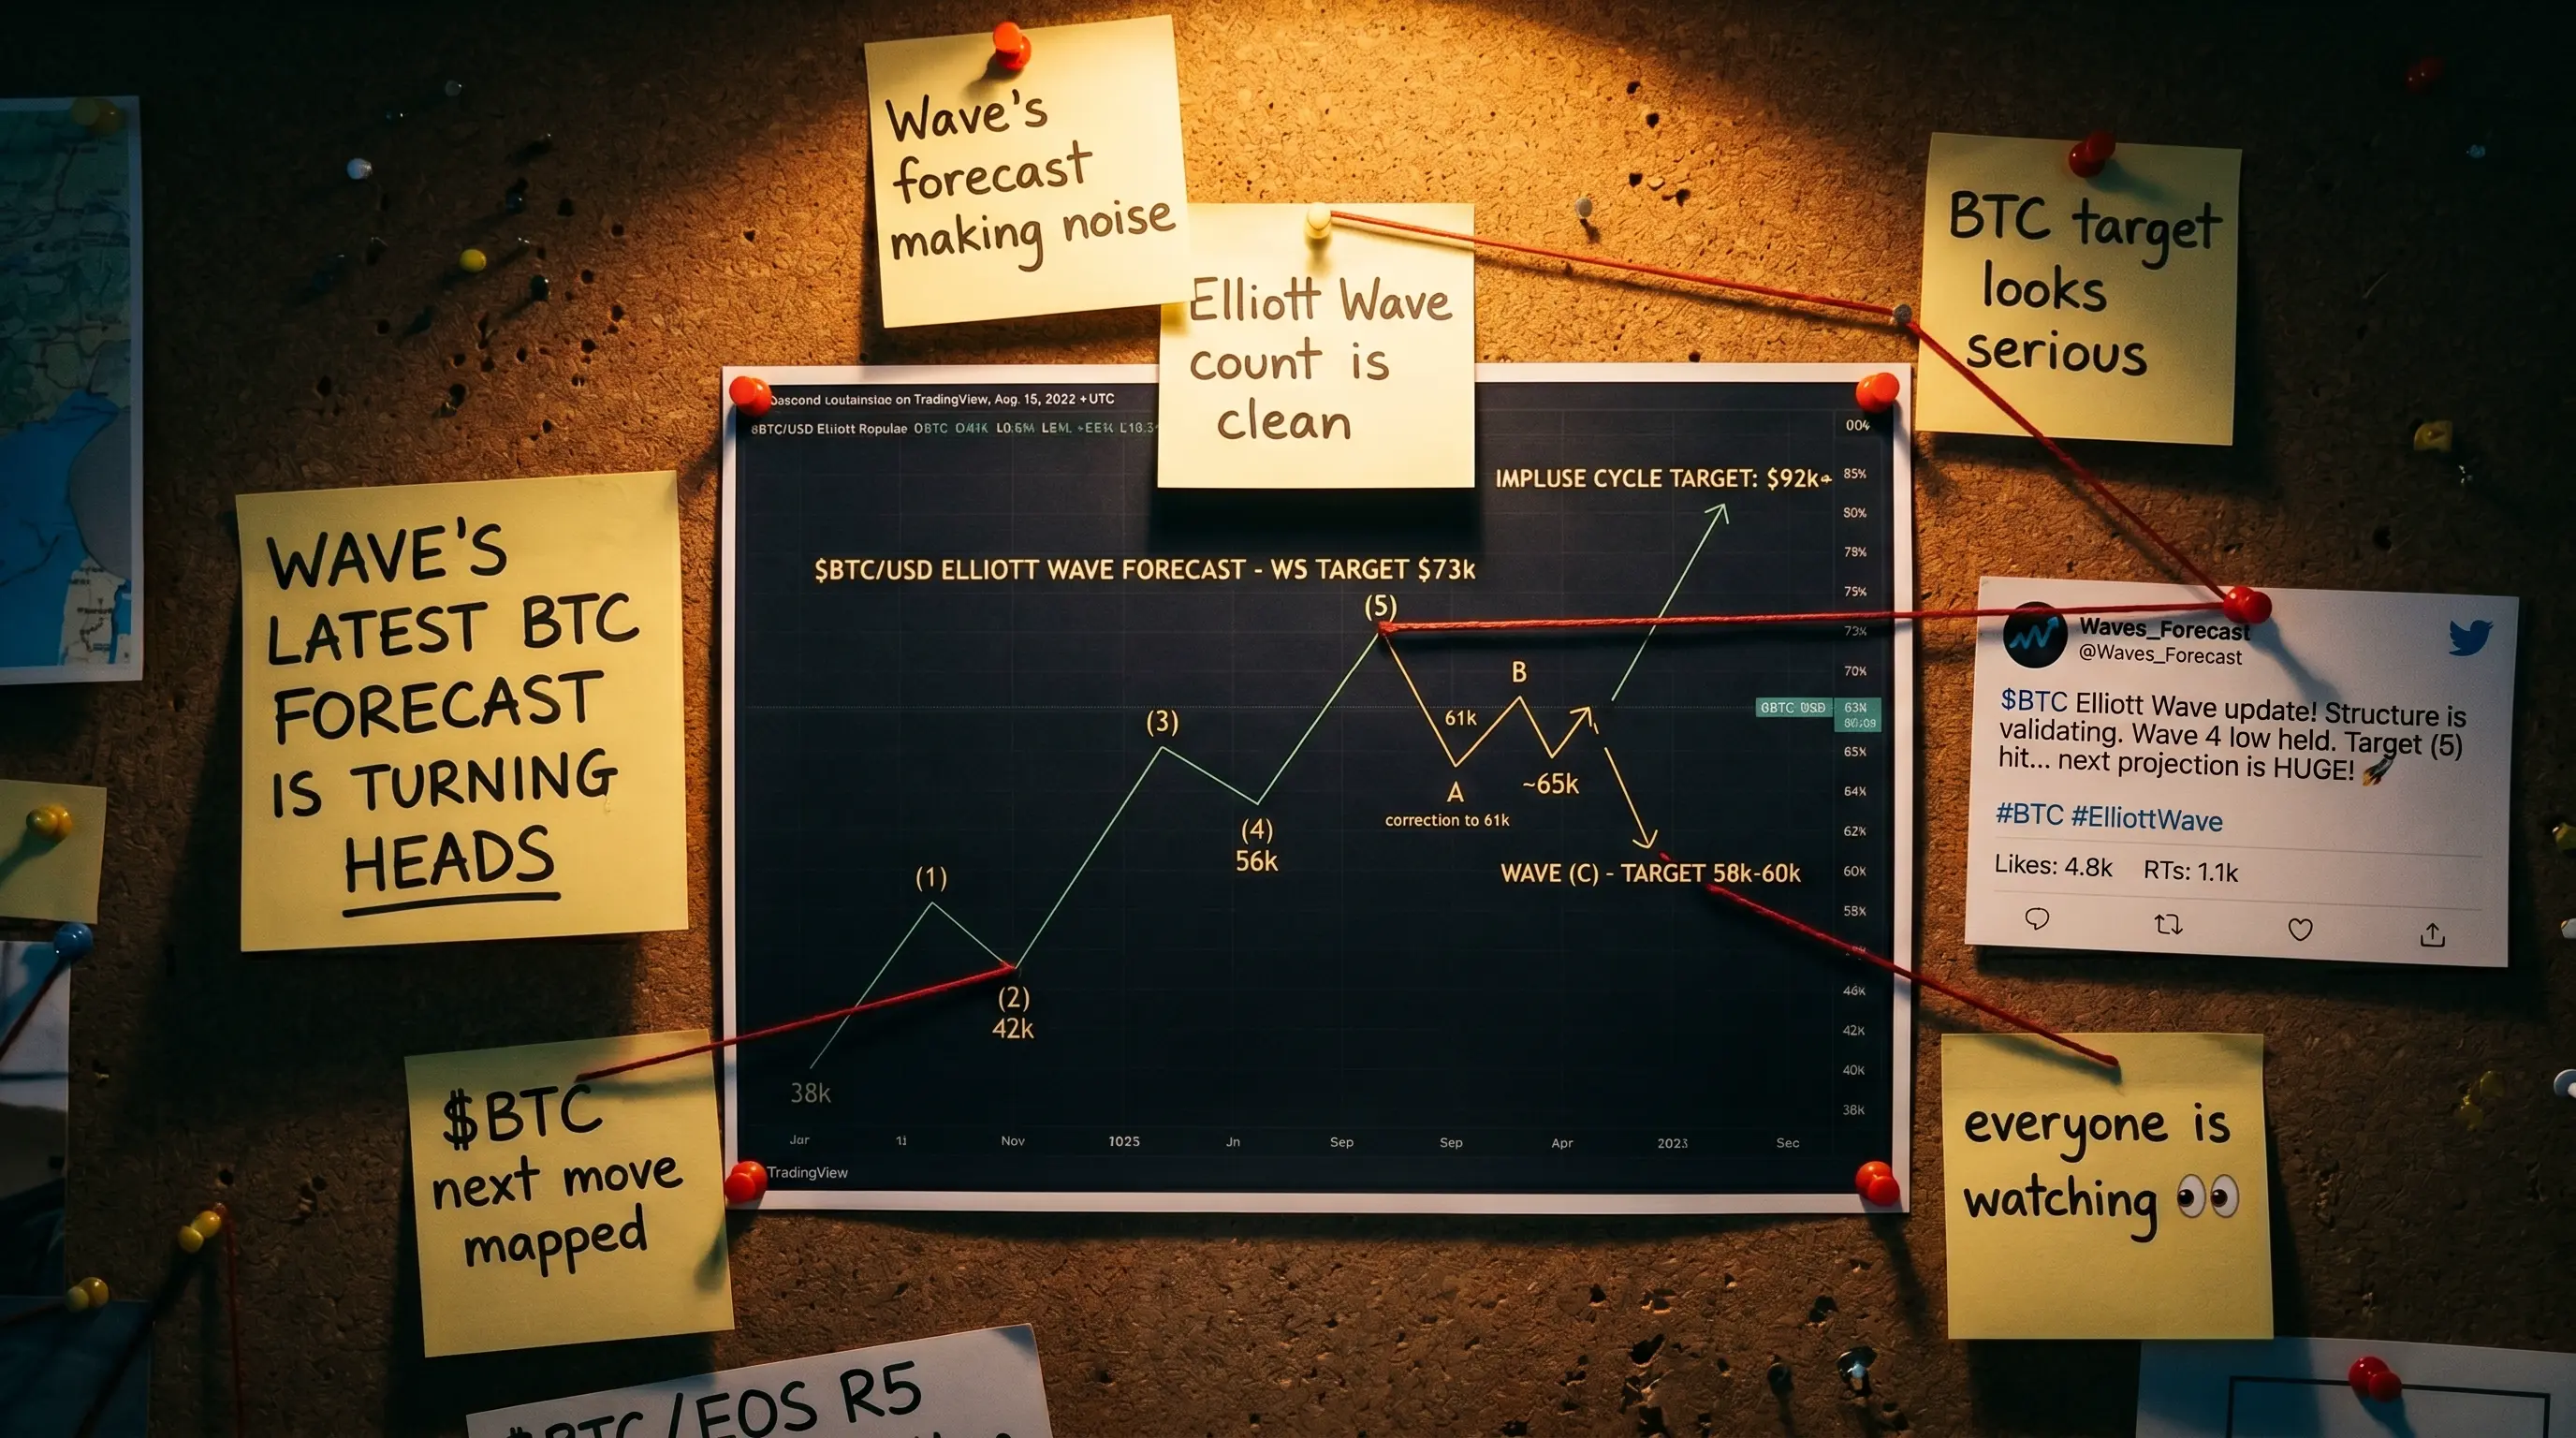 Wave's
forecast
making noise
Elliott Wave
count is
clean
BTC target
looks
serious
WAVE'S
LATEST BTC
FORECAST
IS TURNING
HEADS
$BTC
next move
mapped
on TradingView, Aog. 15, 2022 + UTC
BTC/USD Elliott Ropulae OBTC
IMPLUSE CYCLE TARGET: $92k
$BTC/USD ELLIOTT WAVE FORECAST - WS TARGET $73k
(5)
B
(3)
61k
A
~65k
correction to 61k
(4)
56k
WAVE (C) - TARGET 58k-60k
(1)
(2)
42k
38k
004
85%
80%
78%
75%
73%
70%
GBTC USD
63N
65%
64%
62%
60%
58%
46K
42K
40K
38K
Jar
11
Nov
1025
Jn
Sep
Sep
Apr
2023
Sec
TradingView
Waves_Forecast
@Waves_Forecast
$BTC Elliott Wave update! Structure is
validating. Wave 4 low held. Target (5)
hit... next projection is HUGE! 🚀
#BTC #ElliottWave
Likes: 4.8k RTs: 1.1k
everyone is
watching 👀
$BTC/EOS R5